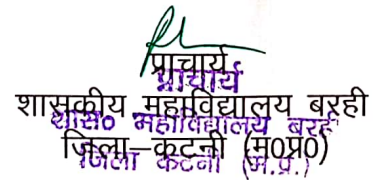 प्राचार्य
प्राचार्य
शासकीय महाविद्यालय बरही
शास० महाविद्यालय बरही
जिला–कटनी (म0प्र0)
जिला कटनी (म.प्र.)